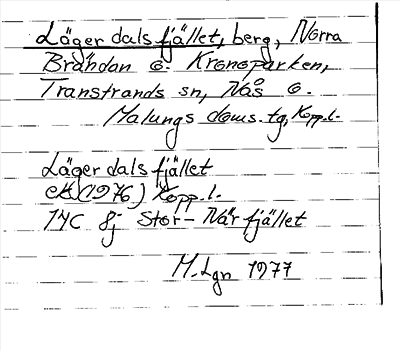 Läger dals fjället, berg, Norra
Brändan o. Kronoparken,
Transtrands sn, Nås o.
Malungs doms. tg, Kopp. l.
Läger dals fjället
ek (1976) Kopp. l.
14C 8j Stor-Närfjället
M. Lgn 1977